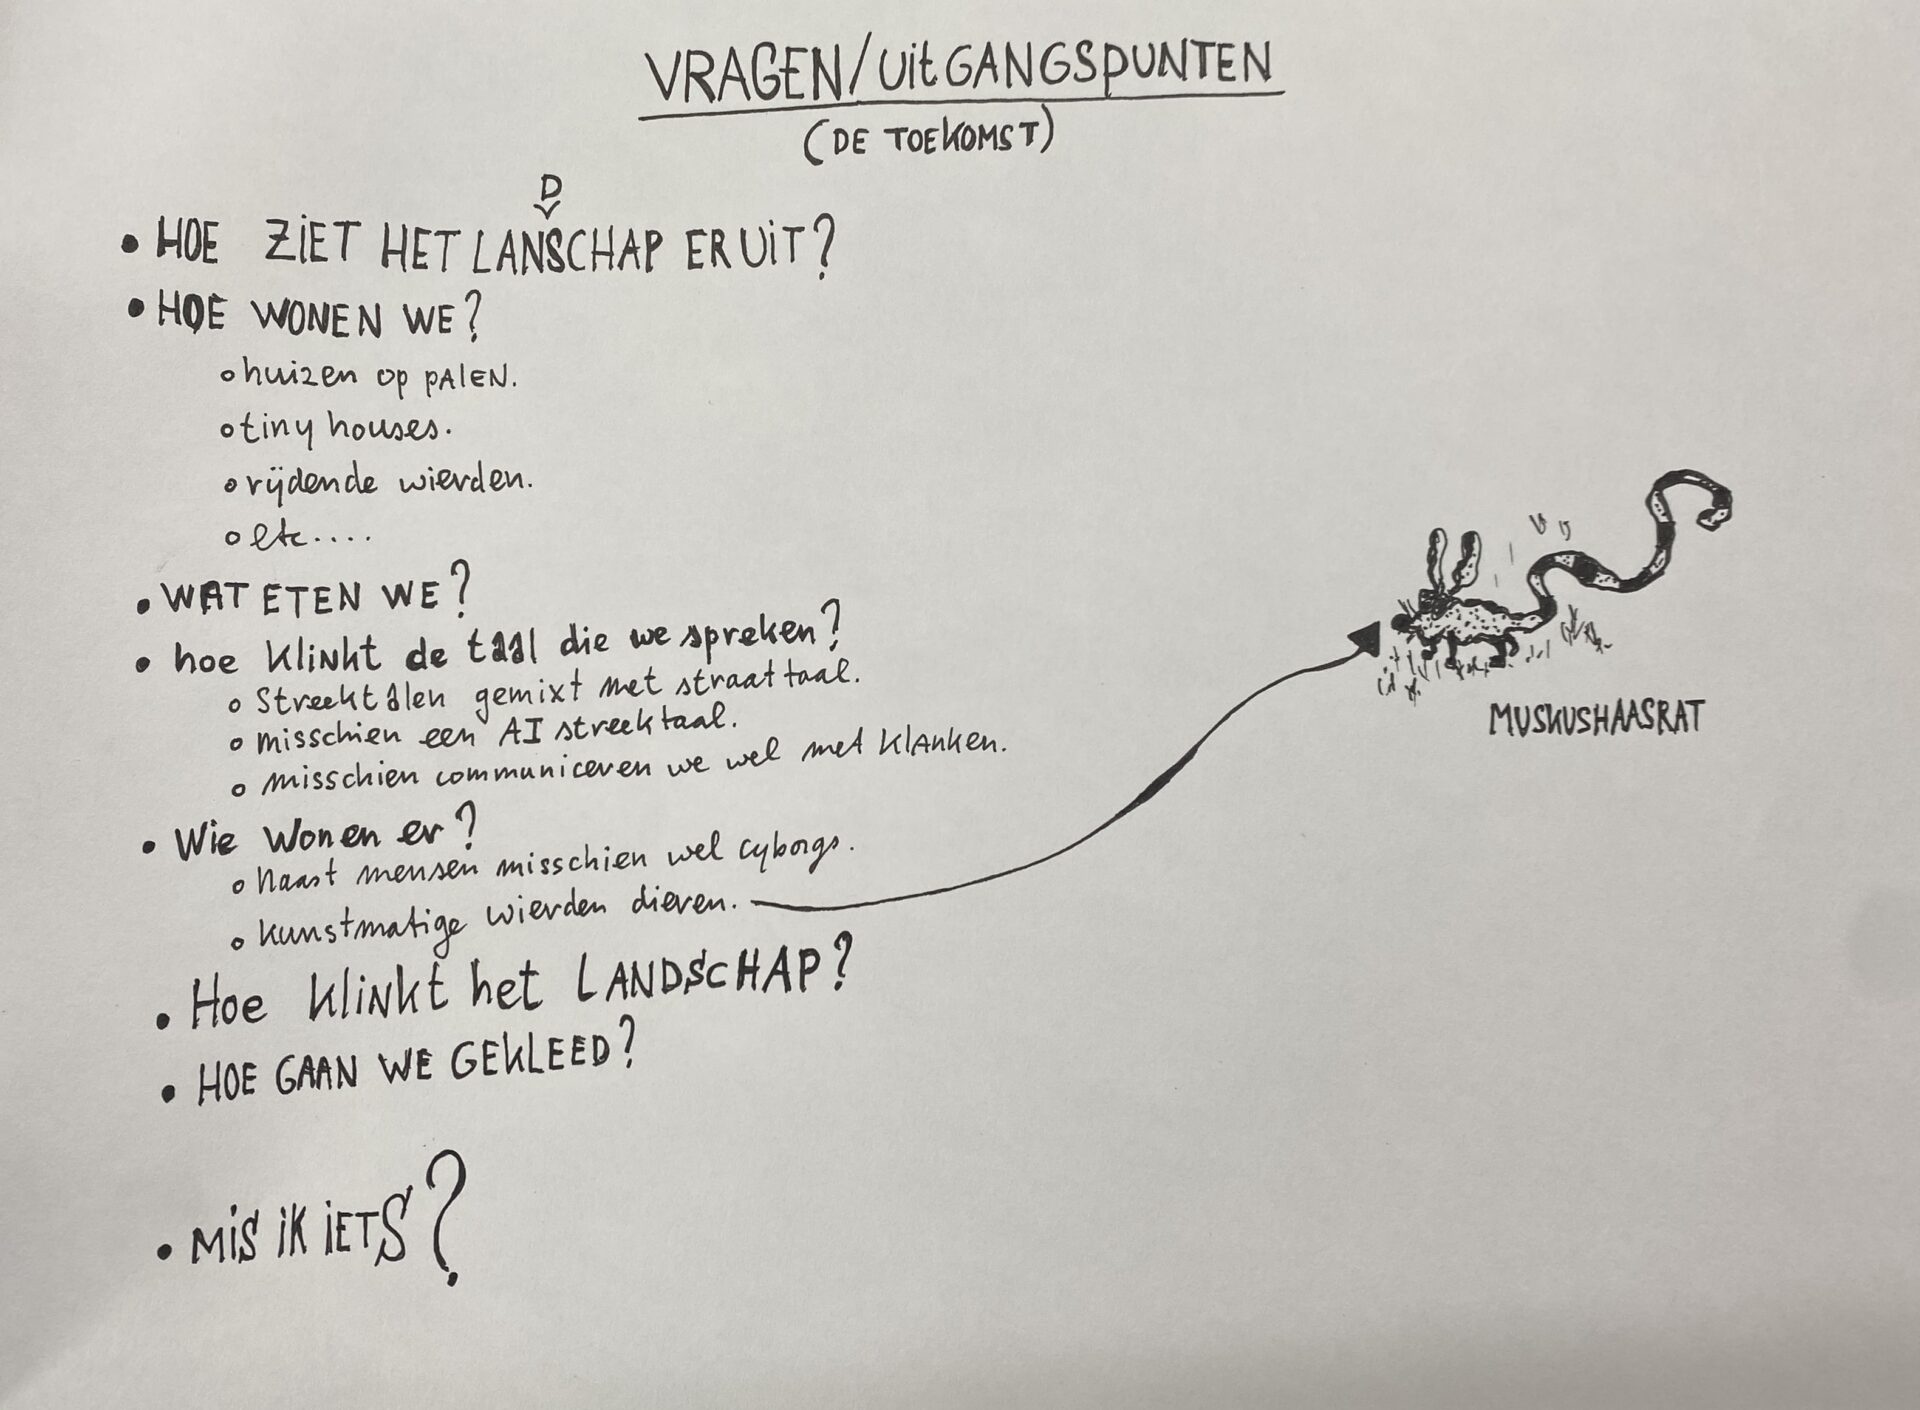 VRAGEN/UitGANGSPUNTEN
(DE TOEKOMST)
D
• HOE ZiET HET LANSCHAP ER UiT?
• HOE WONEN WE?
o huizen op pAlEN.
o tiny houses.
o rijdende wierden.
o etc....
• WAT ETEN WE?
• hoe Klinkt de taal die we spreken?
o Streektalen gemixt met straattaal.
o misschien een AI streektaal.
o misschien communiceren we wel met klanken.
• Wie Wonen er?
o Naast mensen misschien wel cyborgs.
o kunstmatige wierden dieren.
MUSKUSHAASRAT
• Hoe Klinkt het LANDSCHAP?
• HOE GAAN WE GEKLEED?
• MiS iK iETS?